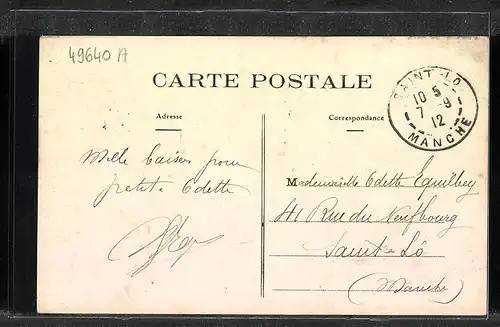 49640 A
CARTE POSTALE
SAINT-LO
10 5
7 -9
12
MANCHE
Adresse
Correspondance
Mille baisers pour
petite Odette
Mademoiselle Odette Equilbey
41 Rue du Neufbourg
Saint-Lô
(Manche)